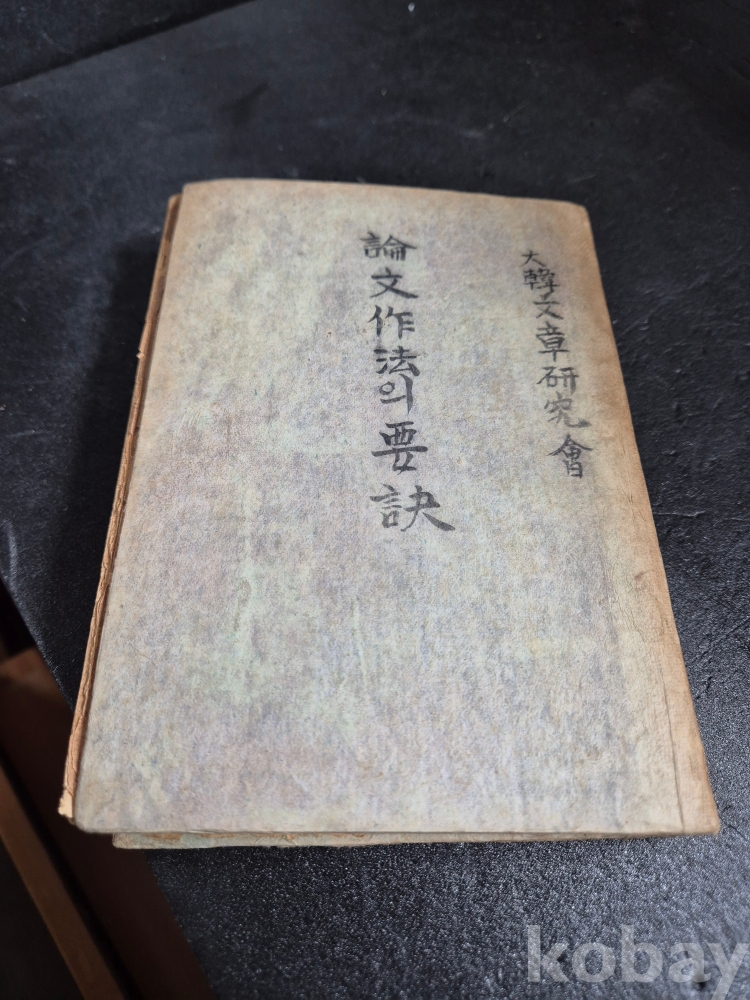 大韓文章研究會
論文作法의要訣
kobay